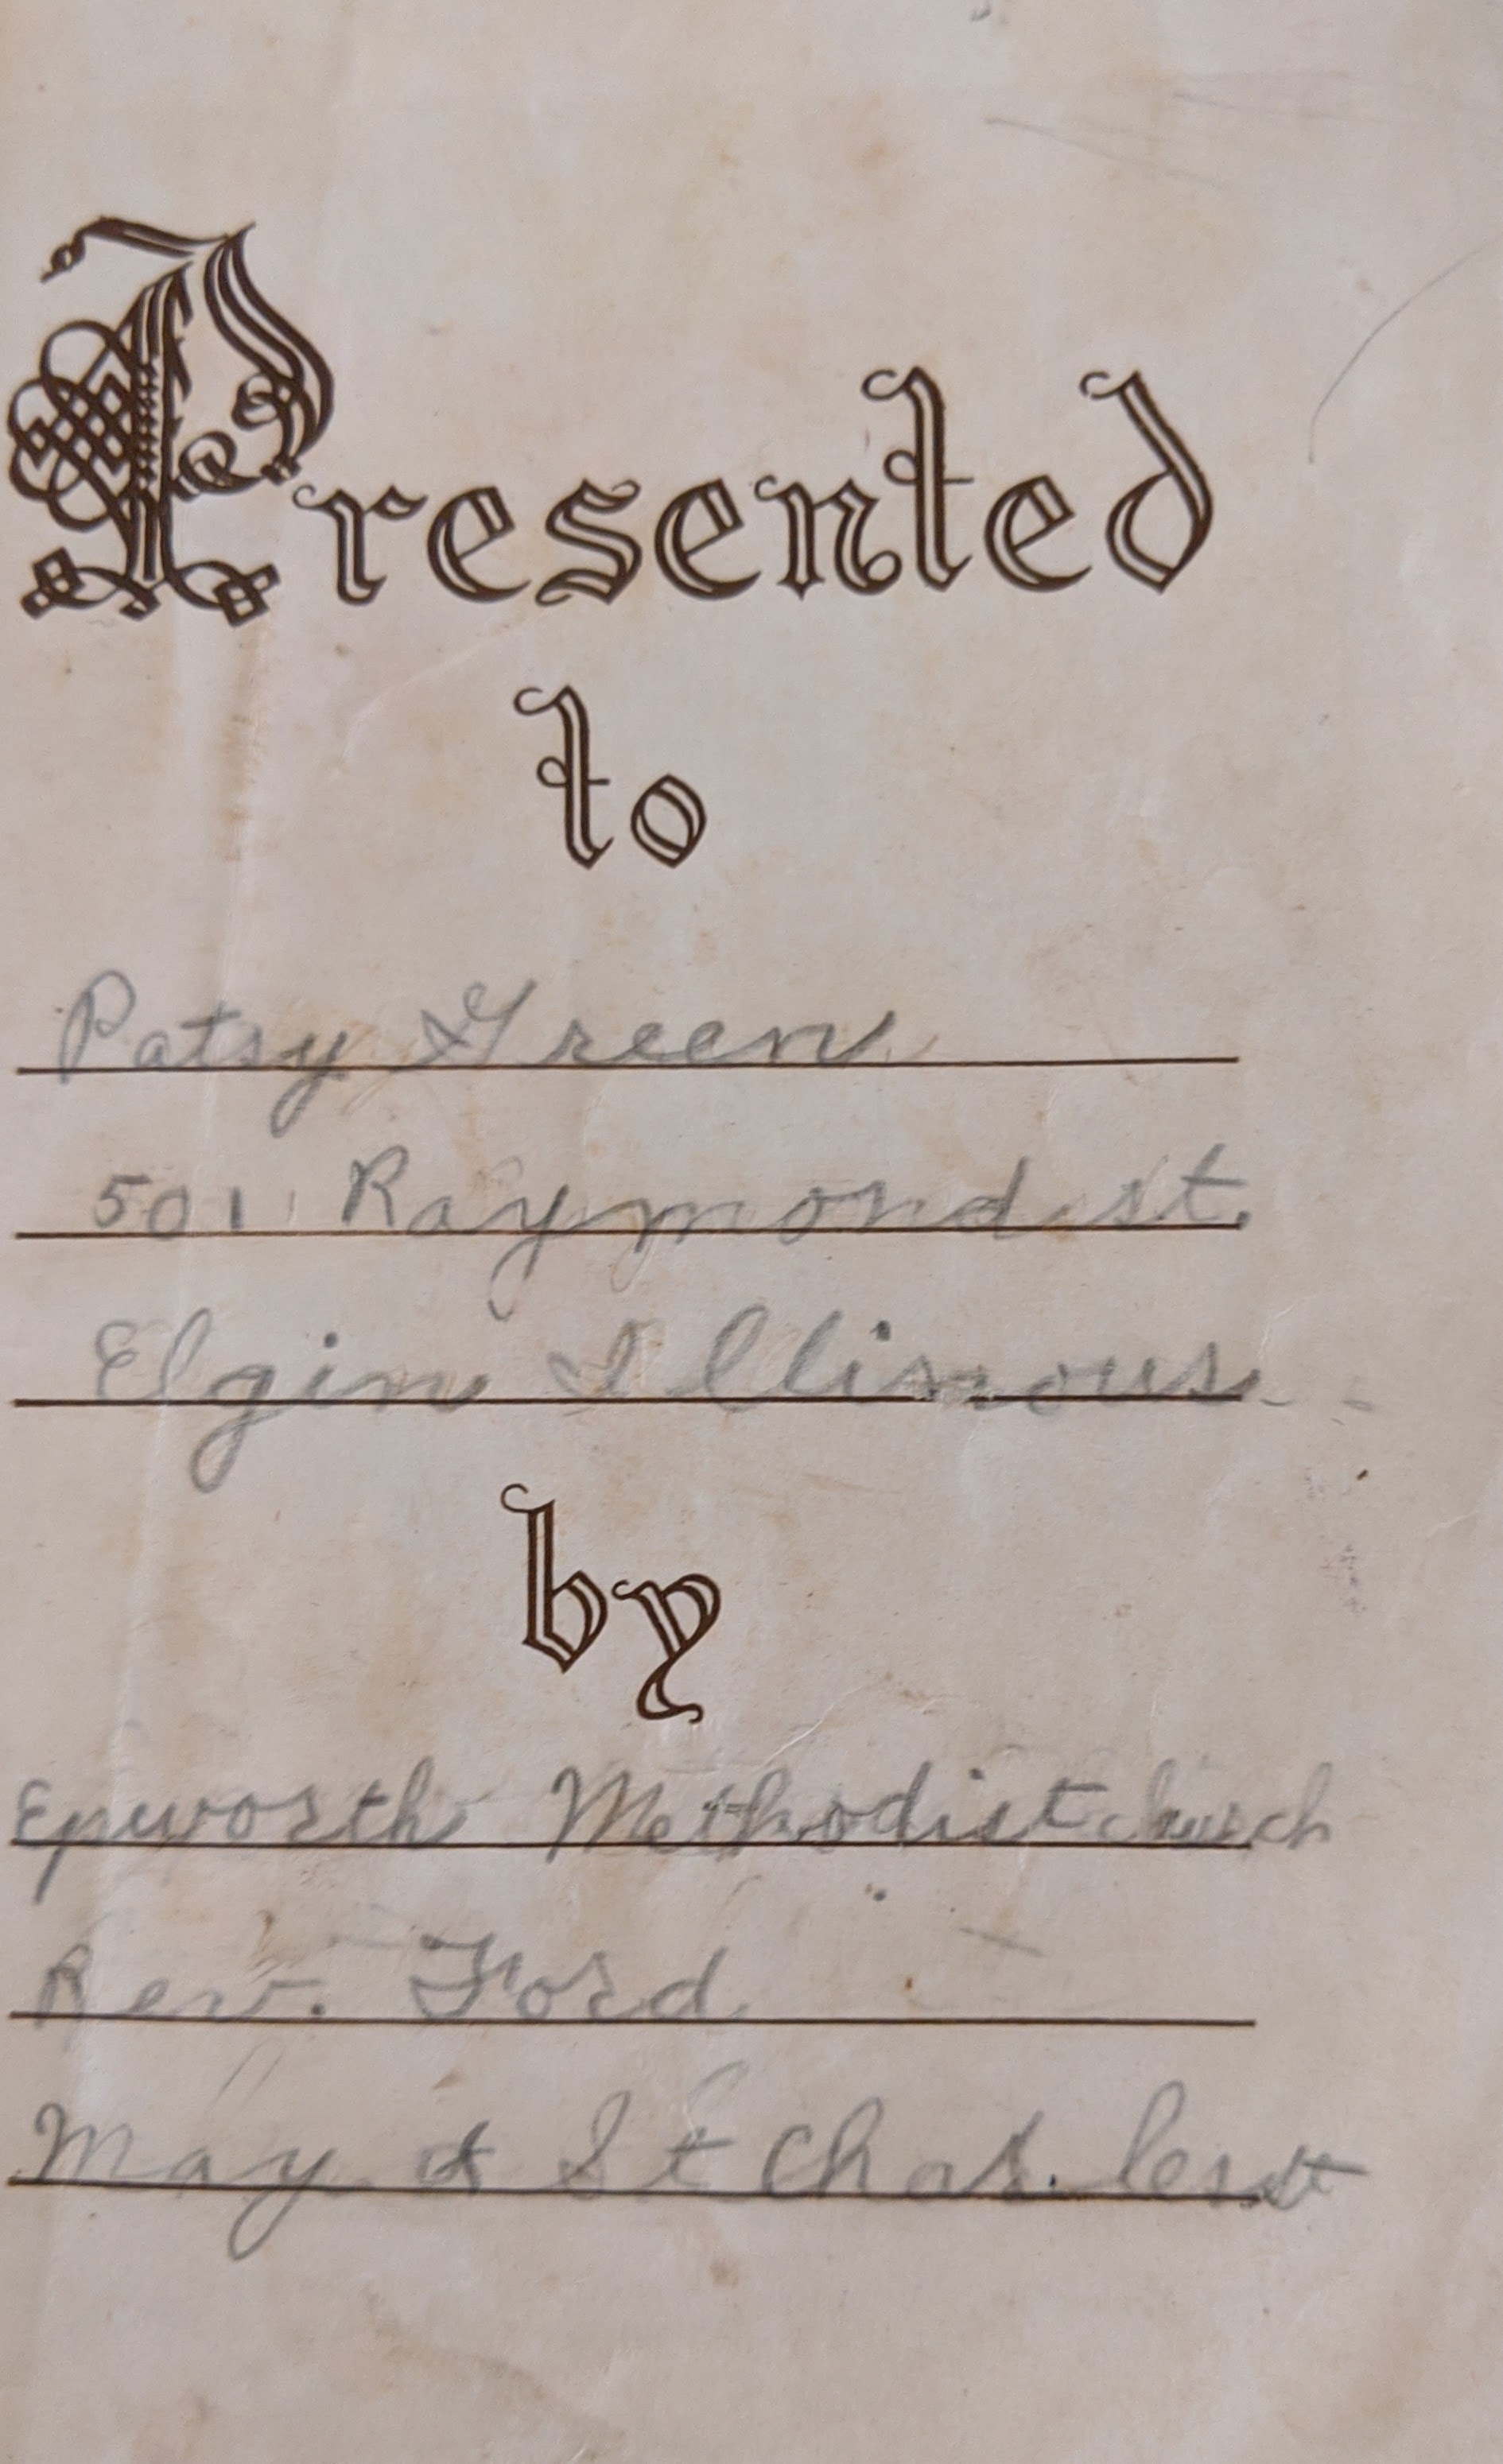 Presented
to
Patsy Green
501 Raymond st.
Elgin Illinous
by
Epworth Methodist church
Rev. Ford
May & St Charles st